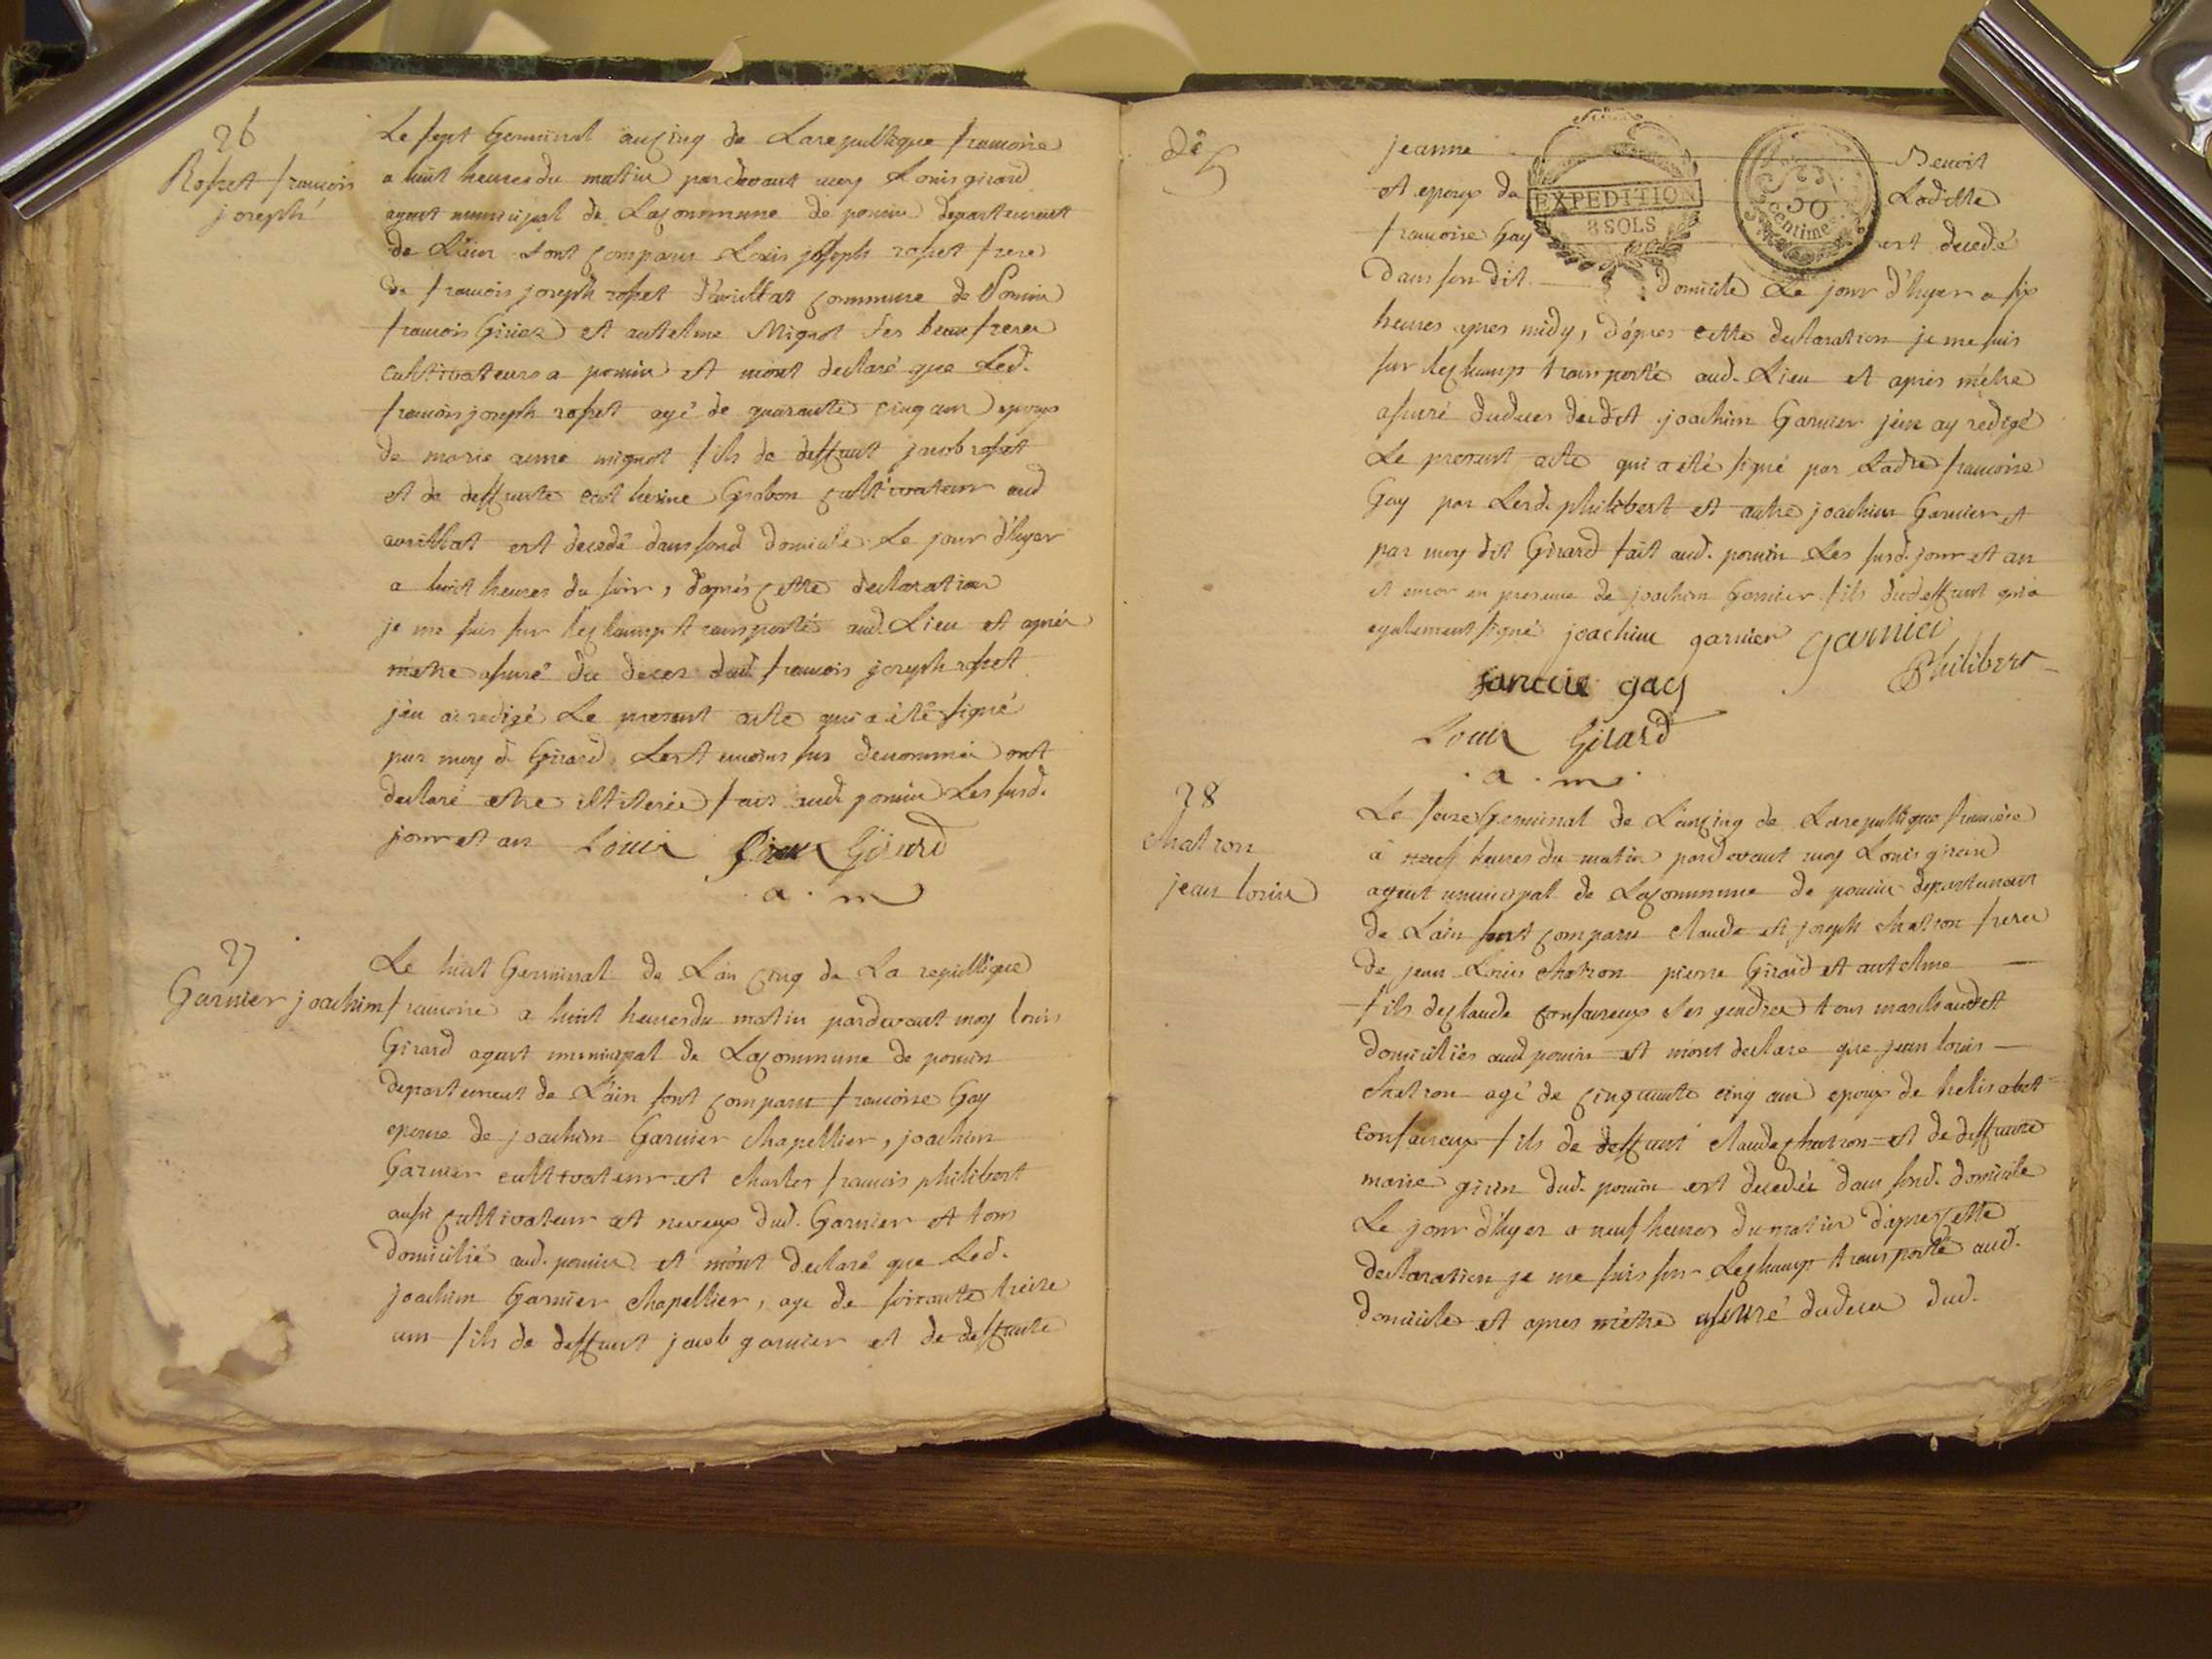 26
Rosset françois
joseph
Le sept Germinal an Cinq de La republique francoise
a huit heures du matin pardevant moy Louis girard
agent municipal de La Commune de poncin departement
de L'ain sont Comparus Louis joseph rosset frere
de francois joseph rosset d'avrillat Commune de Poncin
francois Giriez et antelme Mignot ses beau freres
cultivateurs a poncin et m'ont declaré que Led.
francois joseph rosset agé de quarante cinq ans epoux
de marie anne mignot fils de deffunt jacob rosset
et de deffunte catherine Grabon Cultivateur aud
avrillat est decedé dans sond domicile Le jour d'hyer
a huit heures du soir, d'aprés Cette declaration
je me suis sur Le Champ transporté aud. Lieu et aprés
metre assuré du deces dud francois joseph rosset
j'en ai redigé Le present acte qui a été signé
par moy d. Girard Les temoins sus denommés ont
declaré etre illiterés fait aud. poncin Les susd.
jour et an Louis Girard
a . m
27
Garnier joachim
Le huit Germinal de L'an Cinq de La republique
francoise a huit heures du matin pardevant moy louis
Girard agent municipal de La Commune de poncin
departement de L'ain sont Comparu francoise Gay
epouse de joachim Garnier chapellier, joachim
Garnier cultivateur et charles francois philibert
aussi Cultivateur et neveux dud. Garnier et tous
domicilié aud. poncin et m'ont declaré que Led.
joachim Garnier chapellier, age de soixante treize
ans fils de deffunt jacob garnier et de deffunte
jeanne Benoit
et epoux de Laditte
francoise Gay est decedé
EXPEDITION
8 SOLS
50
centime
dans son dit domicile Le jour d'hyer a six
heures apres midy, d'apres cette declaration je me suis
sur Le Champ transporté aud. Lieu et aprés m'etre
assuré du deces dudit joachim Garnier j'en ay redigé
Le present acte qui a été signé par Ladte francoise
Gay par Lesd. philibert et autre joachim Garnier et
par moy dit Girard fait aud. poncin Les susd. jour et an
et encor en presence de joachim Garnier fils dud deffunt qui a
egalement signé joachim garnier Garnier
Philibert
gay
Louis Girard
a . m
28
chatron
jean louis
Le seize Germinal de L'an Cinq de La republique francoise
a neuf heures du matin pardevant moy Louis girard
agent municipal de La Commune de poncin departement
de L'ain sont Comparu claude et joseph chatron freres
de jean Louis chatron pierre Girard et antelme
fils de Claude Confavreux ses gendres tous marchands et
domiciliés aud poncin et m'ont declare que jean louis
chatron agé de Cinquante cinq ans epoux de helisabet
confavreux fils de deffunt claude chatron et de deffunte
marie girin dud. poncin est decedée dans sond. domicile
Le jour d'hyer a neuf heures du matin d'apres Cette
declaration je me suis sur Le Champ transporté aud.
domicile et apres m'etre assuré du deces dud.